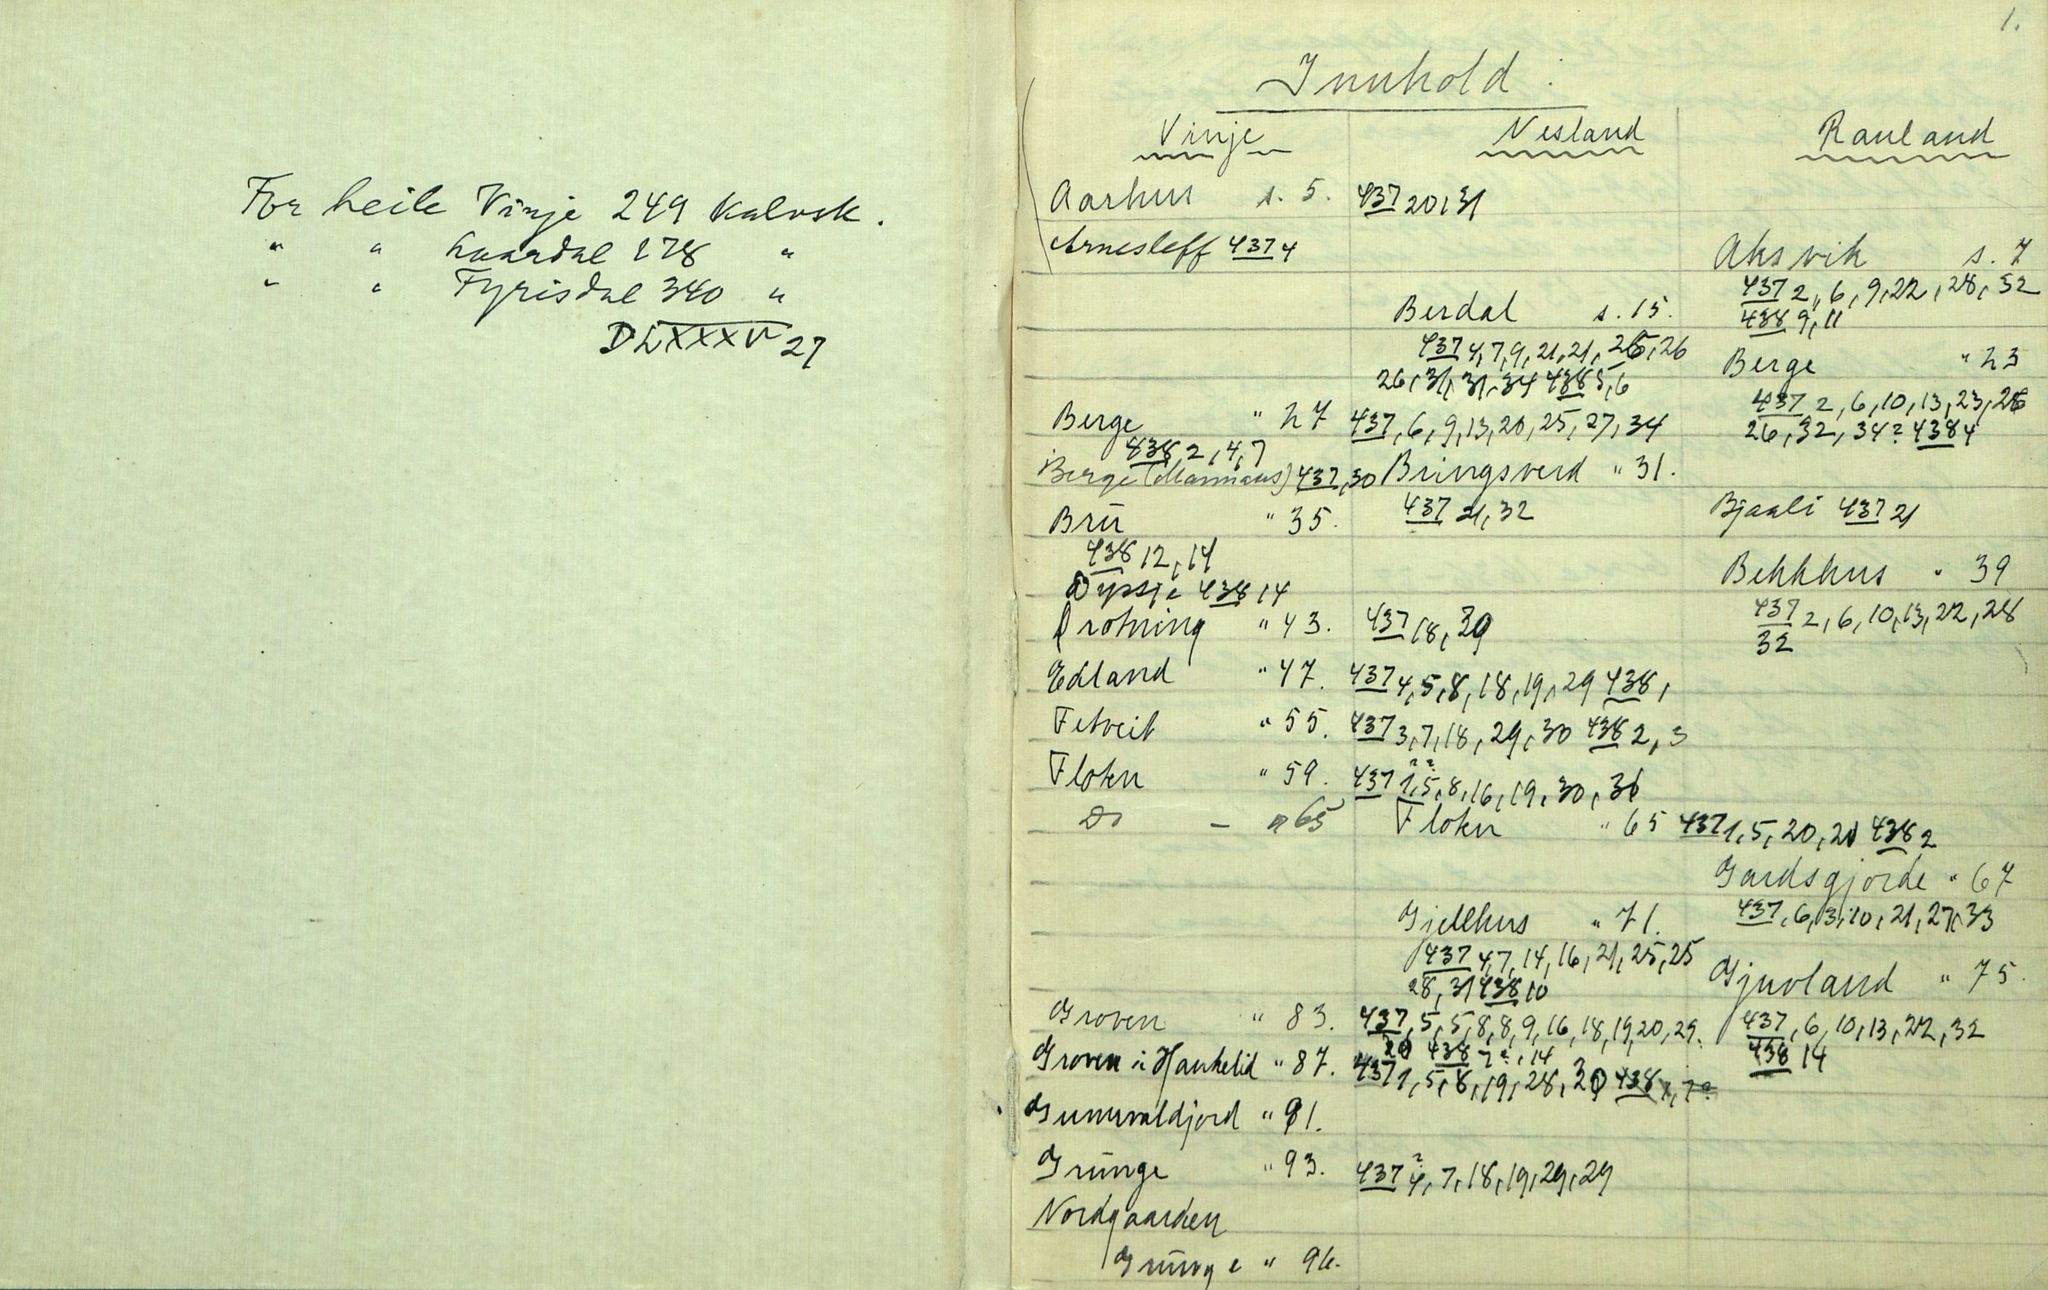 For heile Vinje 249 kalvsk.
" " Laardal 278 "
" " Fyrisdal 340 "
DLXXXV 27
1.
Innhold:
Vinje Nesland Rauland
Aarhus s. 5. 437 20, 31
Arnesleff 437 4
Aksvik s. 7
437 2, 6, 9, 22, 28, 32
438 9, 11
Berdal s. 15.
437 4, 7, 9, 21, 21, 25, 26
26, 31, 31, 34 438 5, 6
Berge " 23
437 2, 6, 10, 13, 23, 26
26, 32, 34? 438 4
Berge " 27 437, 6, 9, 13, 20, 25, 27, 34
838 2, 4, 7
Berge (Marmaus) 437, 30 Bringsverd " 31.
437 21, 32
Bru " 35.
438 12, 14
Bjaali 437 21
Dyrsje 438 14
Bekkhus " 39
437 2, 6, 10, 13, 22, 28
32
Drotning " 43. 437 18, 30
Edland " 47. 437 4, 5, 8, 18, 19, 29 438,
Fetveit " 55. 437 3, 7, 18, 29, 30 438 2, 3
Flotu " 59. 437 1, 5, 8, 16, 19, 30, 31
Do – " 65 Flotu " 65 437 1, 5, 20, 21 438 2
Gardsgjorde " 67
437, 6, 3, 10, 21, 27, 33
Gjellhus " 71.
437 4, 7, 14, 16, 21, 25, 25
28, 31 438 10
Gjuvland " 75.
437, 6, 10, 13, 22, 32
438 14
Groven " 83. 437, 5, 5, 8, 8, 9, 16, 18, 19, 20, 29.
20 438 7?, 14
Groven i Haukelid " 87. 437 1, 5, 8, 19, 28, 30 438
Gunuvaldjord " 91.
Grunge " 93. 437 4?, 7, 18, 19, 29, 29
Nordgaarden
Grunge " 96.